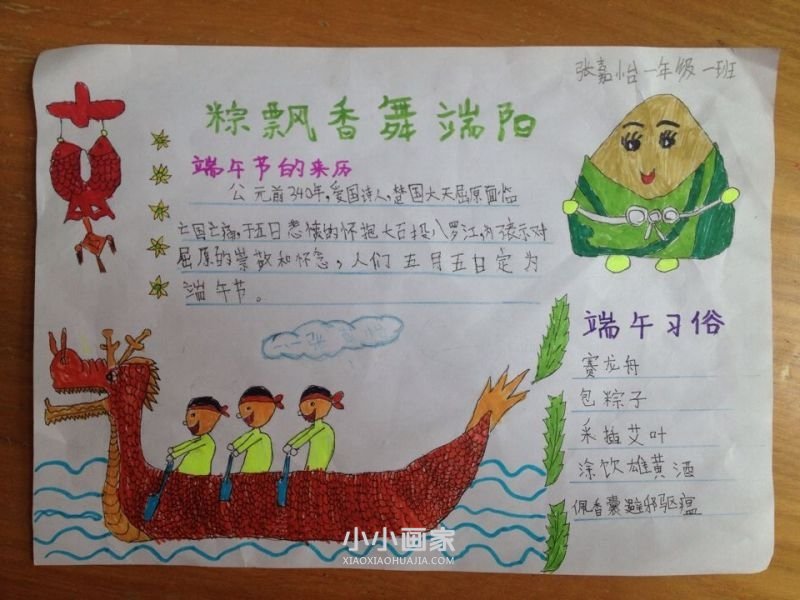 张嘉怡一年级一班
粽飘香舞端阳
端午节的来历
公元前340年，爱国诗人，楚国大夫屈原面临
亡国亡痛，于五日悲愤的怀抱大石投入罗江，为了表示对
屈原的崇敬和怀念，人们五月五日定为
端午节。
端午习俗
赛龙舟
包粽子
采插艾叶
涂饮雄黄酒
佩香囊避邪驱瘟
小小画家
XIAOXIAOHUAJIA.COM